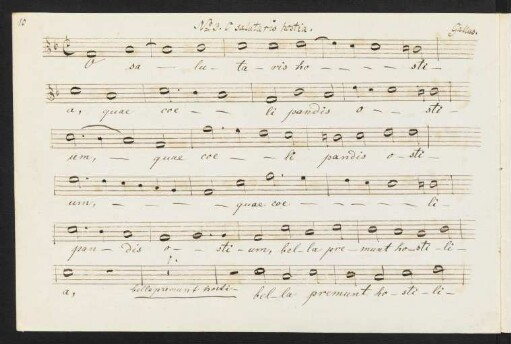 10 No 9. O salutaris hostia. Gallus.
O sa - lu - ta - ris ho - - - - sti -
a, quae coe - - li pandis o - - sti -
um, - quae coe - - li pandis o - sti -
um, - - - - quae coe - - - - li -
pan - dis o - sti - um, bel - la pre - munt ho - sti - li -
a, bella premunt hosti - bel - la premunt ho - sti - li -